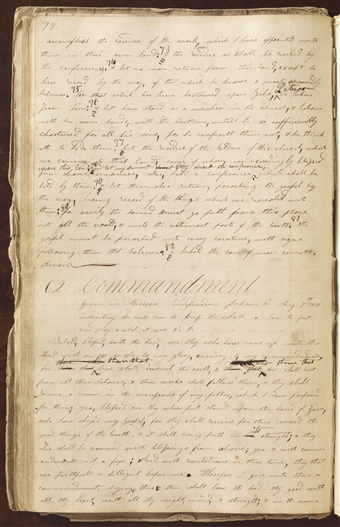 98
accomplish the residue of the work, which I have appointed unto
them in their own land; the residue as shall be ruled by
the conferences. 74 & let no man return from this land, except he
bear record by the way, of that which he knows & most assuredly
believes. 75 let that which has been bestowed upon Ziba be taken
from him; 76 & let him stand as a member in the church, & labour
with his own hands, with the brethren, until he is sufficiently
chastened for all his sins, for he confesseth them not, & he thinketh
to hide them. 77 let the residue of the Elders of this church, which
are coming to this land, some of whom are exceedingly blessed
even above measure, also, hold a conference
upon this land
held by them; let them also return, preaching the gospel by
the way, bearing record of the things which are revealed unto
them; for verily the sound must go forth from this place
into all the world, & unto the uttermost parts of the Earth, 81 the
gospel must be preached unto every creature, with signs
following them that believe, 82 behold the son of man cometh
Amen
62 Commandment
given in Missorie Independence Jackson Co Aug 7th 1831
instructing the saints how to keep the sabath & how to fast
and pray
Behold, blessed, saith the Lord, are they who have come up unto this
land with an eye single to my glory, according
for them that live shall inherit the earth, & them that die shall rest
from all their labours, & their works shall follow them, & they shall
receive a crown in the mansions of my father, which I have prepared
for them; yea, blessed are they whose feet stand upon the land of Zion,
who have obeyed my Gospel, for they shall receive for their reward the
good things of the Earth, & it shall bring forth its strength, & they
also shall be crowned with blessings from above; yea & with comm
andments not a few; & with revelations in their time, they that
are faithful & diligent before me. Wherefore I give unto them a
commandment, saying thus: thou shalt love the Lord thy god with
all thy heart, with all thy might, mind, & strength; & in the name